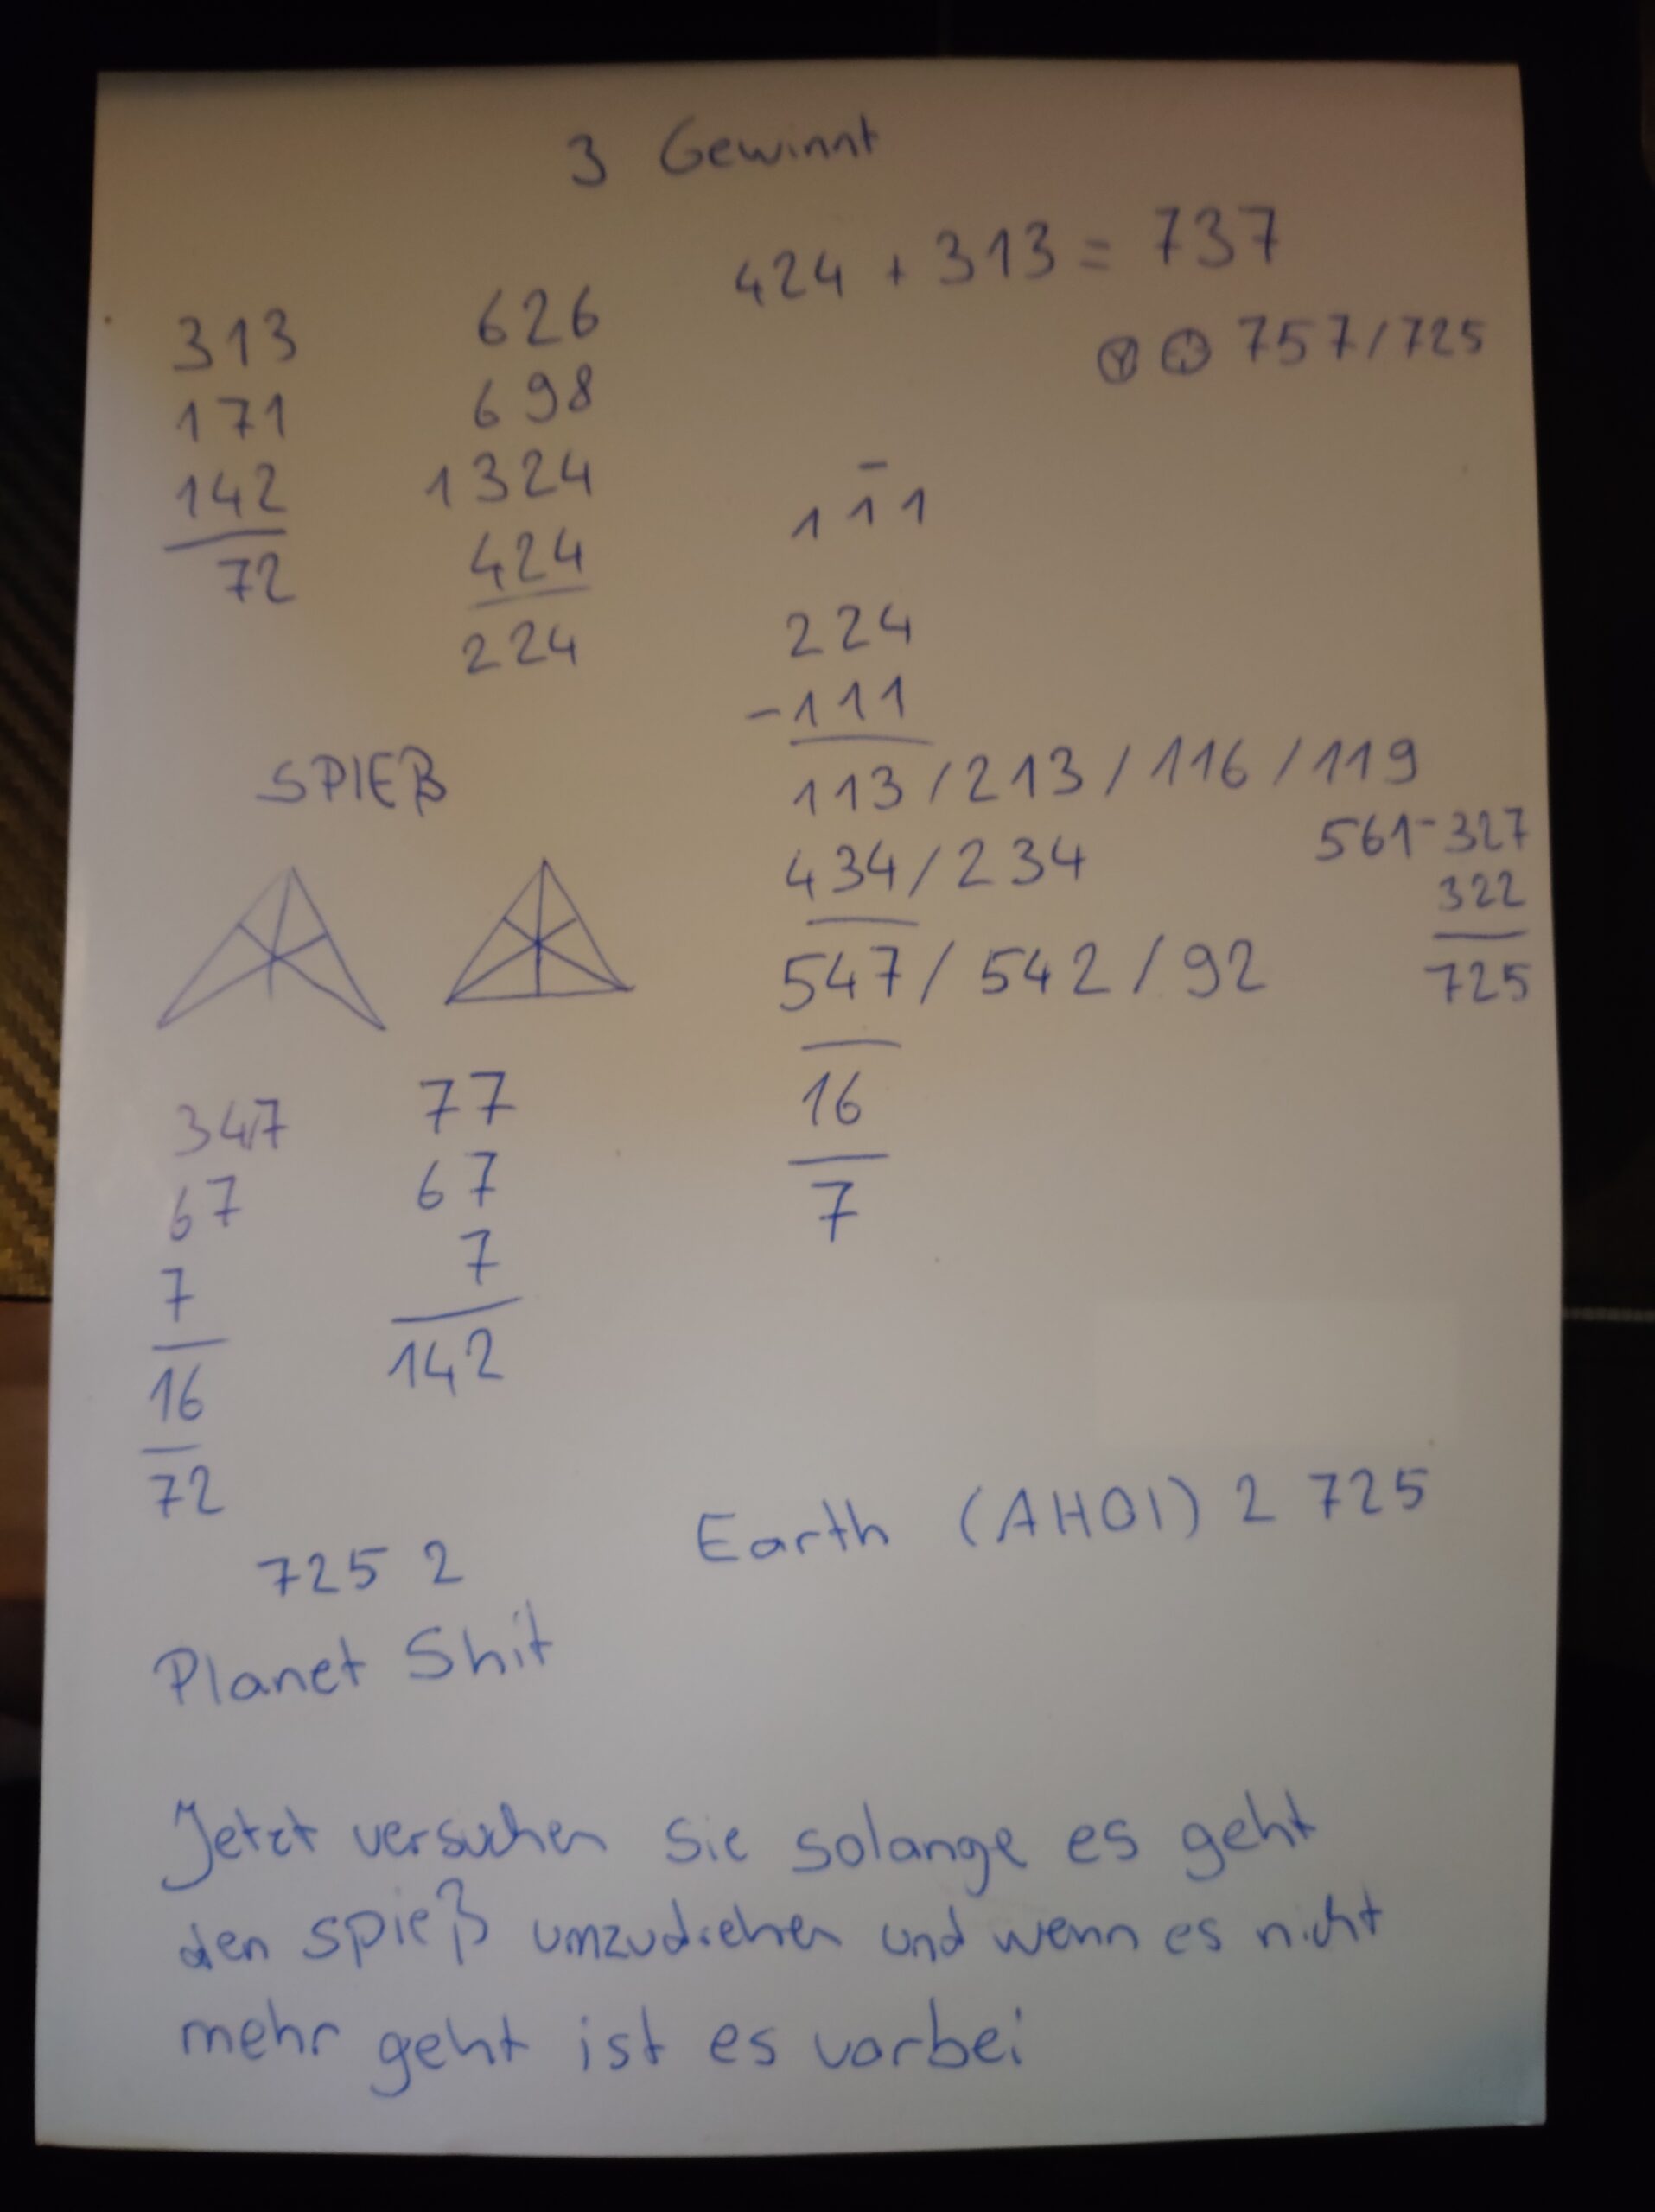 3 Gewinnt
424 + 313 = 737
757/725
313
171
142
72
626
698
1324
424
224
111
224
-111
113/213/116/119
434/234
547/542/92
16
7
561-327
322
725
SPIEß
347
67
7
16
72
77
67
7
142
725 2
Planet Shit
Earth (AHOI) 2 725
Jetzt versuchen sie solange es geht
den spieß umzudrehen und wenn es nicht
mehr geht ist es vorbei